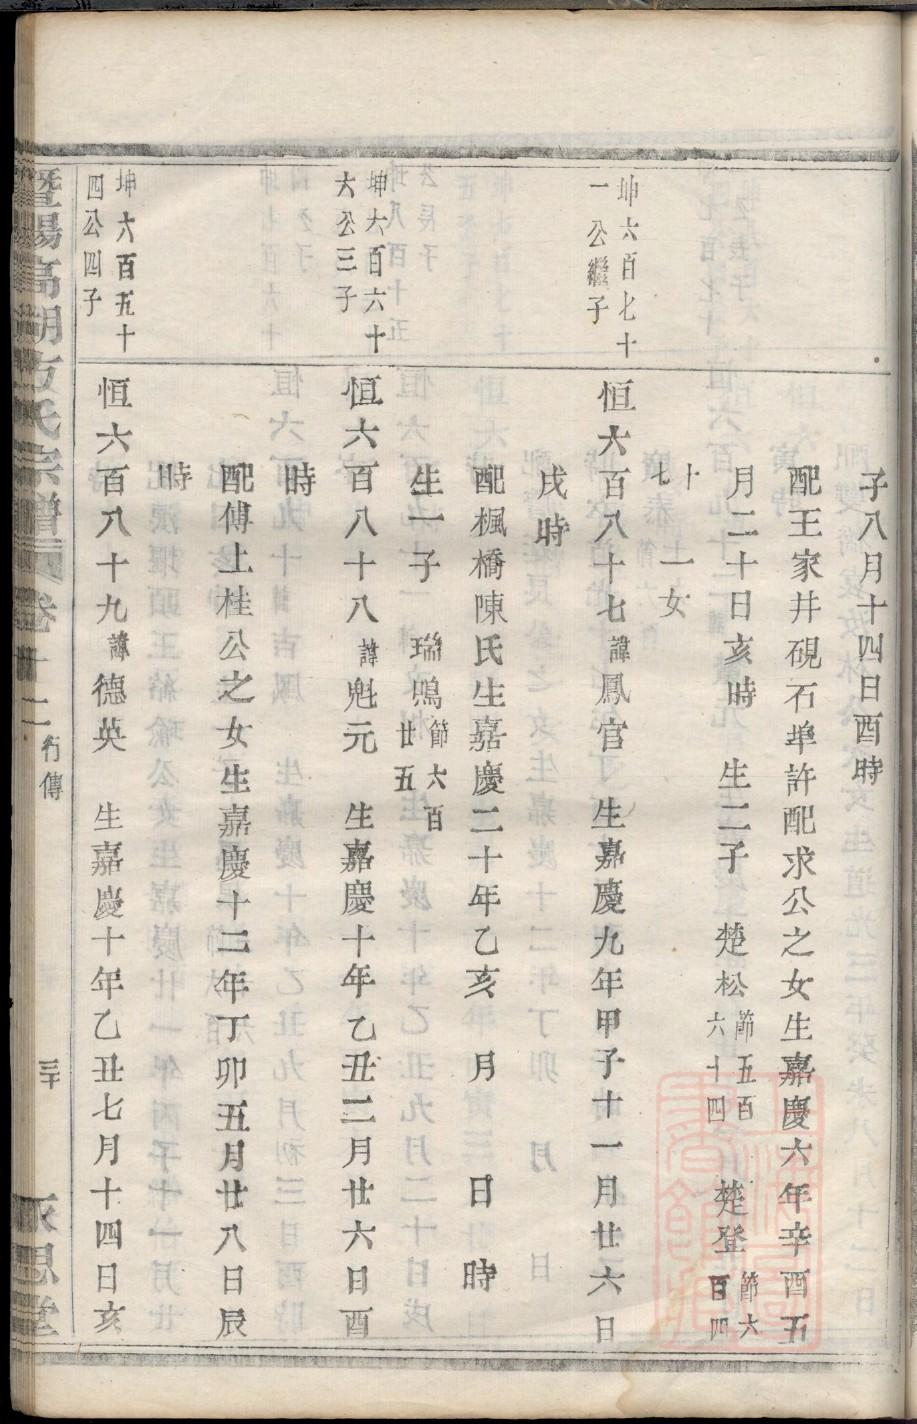 子八月十四日酉時
配王家井硯石埠許配求公之女生嘉慶六年辛酉五
月二十日亥時　生二子　楚松節五百六十四　楚登節六百四
十七　一女
坤六百七十
一公繼子
恒六百八十七諱鳳官　生嘉慶九年甲子十一月廿六日
戌時
配楓橋陳氏生嘉慶二十年乙亥　月　日　時
生一子　瑞鳴節六百廿五
坤六百六十
六公三子
恒六百八十八諱魁元　生嘉慶十年乙丑二月廿六日酉
時
配傅上桂公之女生嘉慶十二年丁卯五月廿八日辰
時
坤六百五十
四公四子
恒六百八十九諱德英　生嘉慶十年乙丑七月十四日亥
暨陽高湖方氏宗譜　卷十二　行傳　三十　永思堂